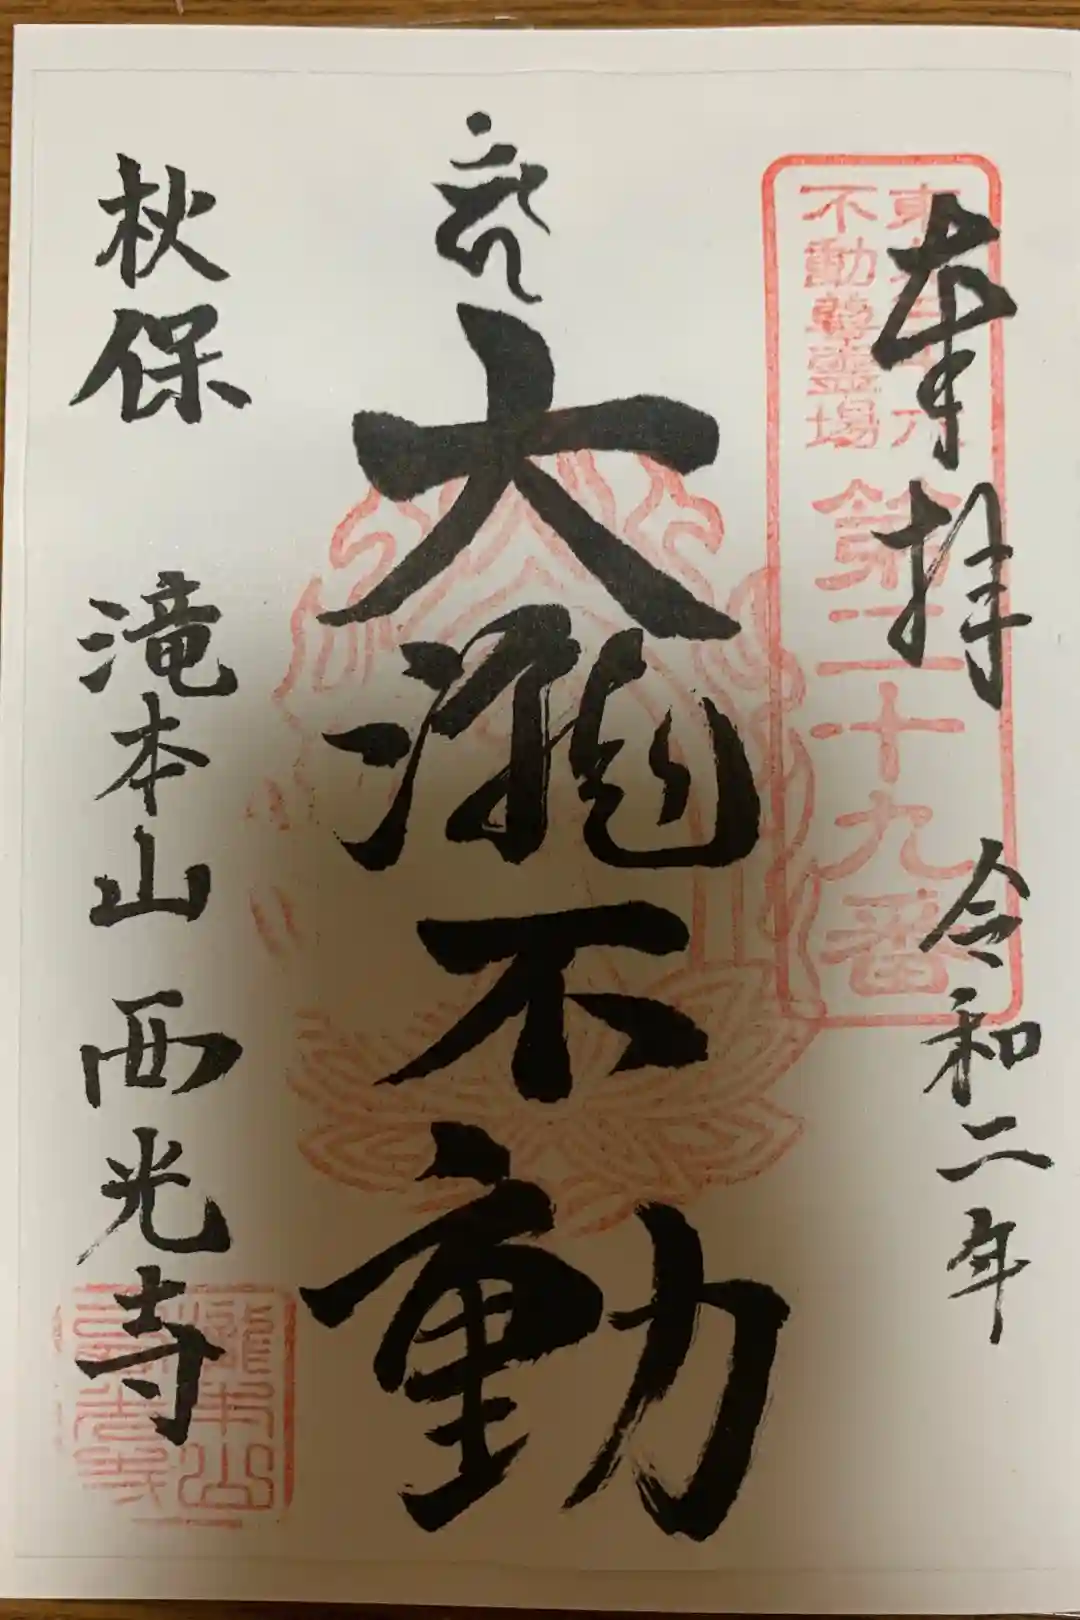 奉拝 令和二年
東北三十六
不動尊霊場
第二十九番
大瀧不動
秋保 滝本山 西光寺